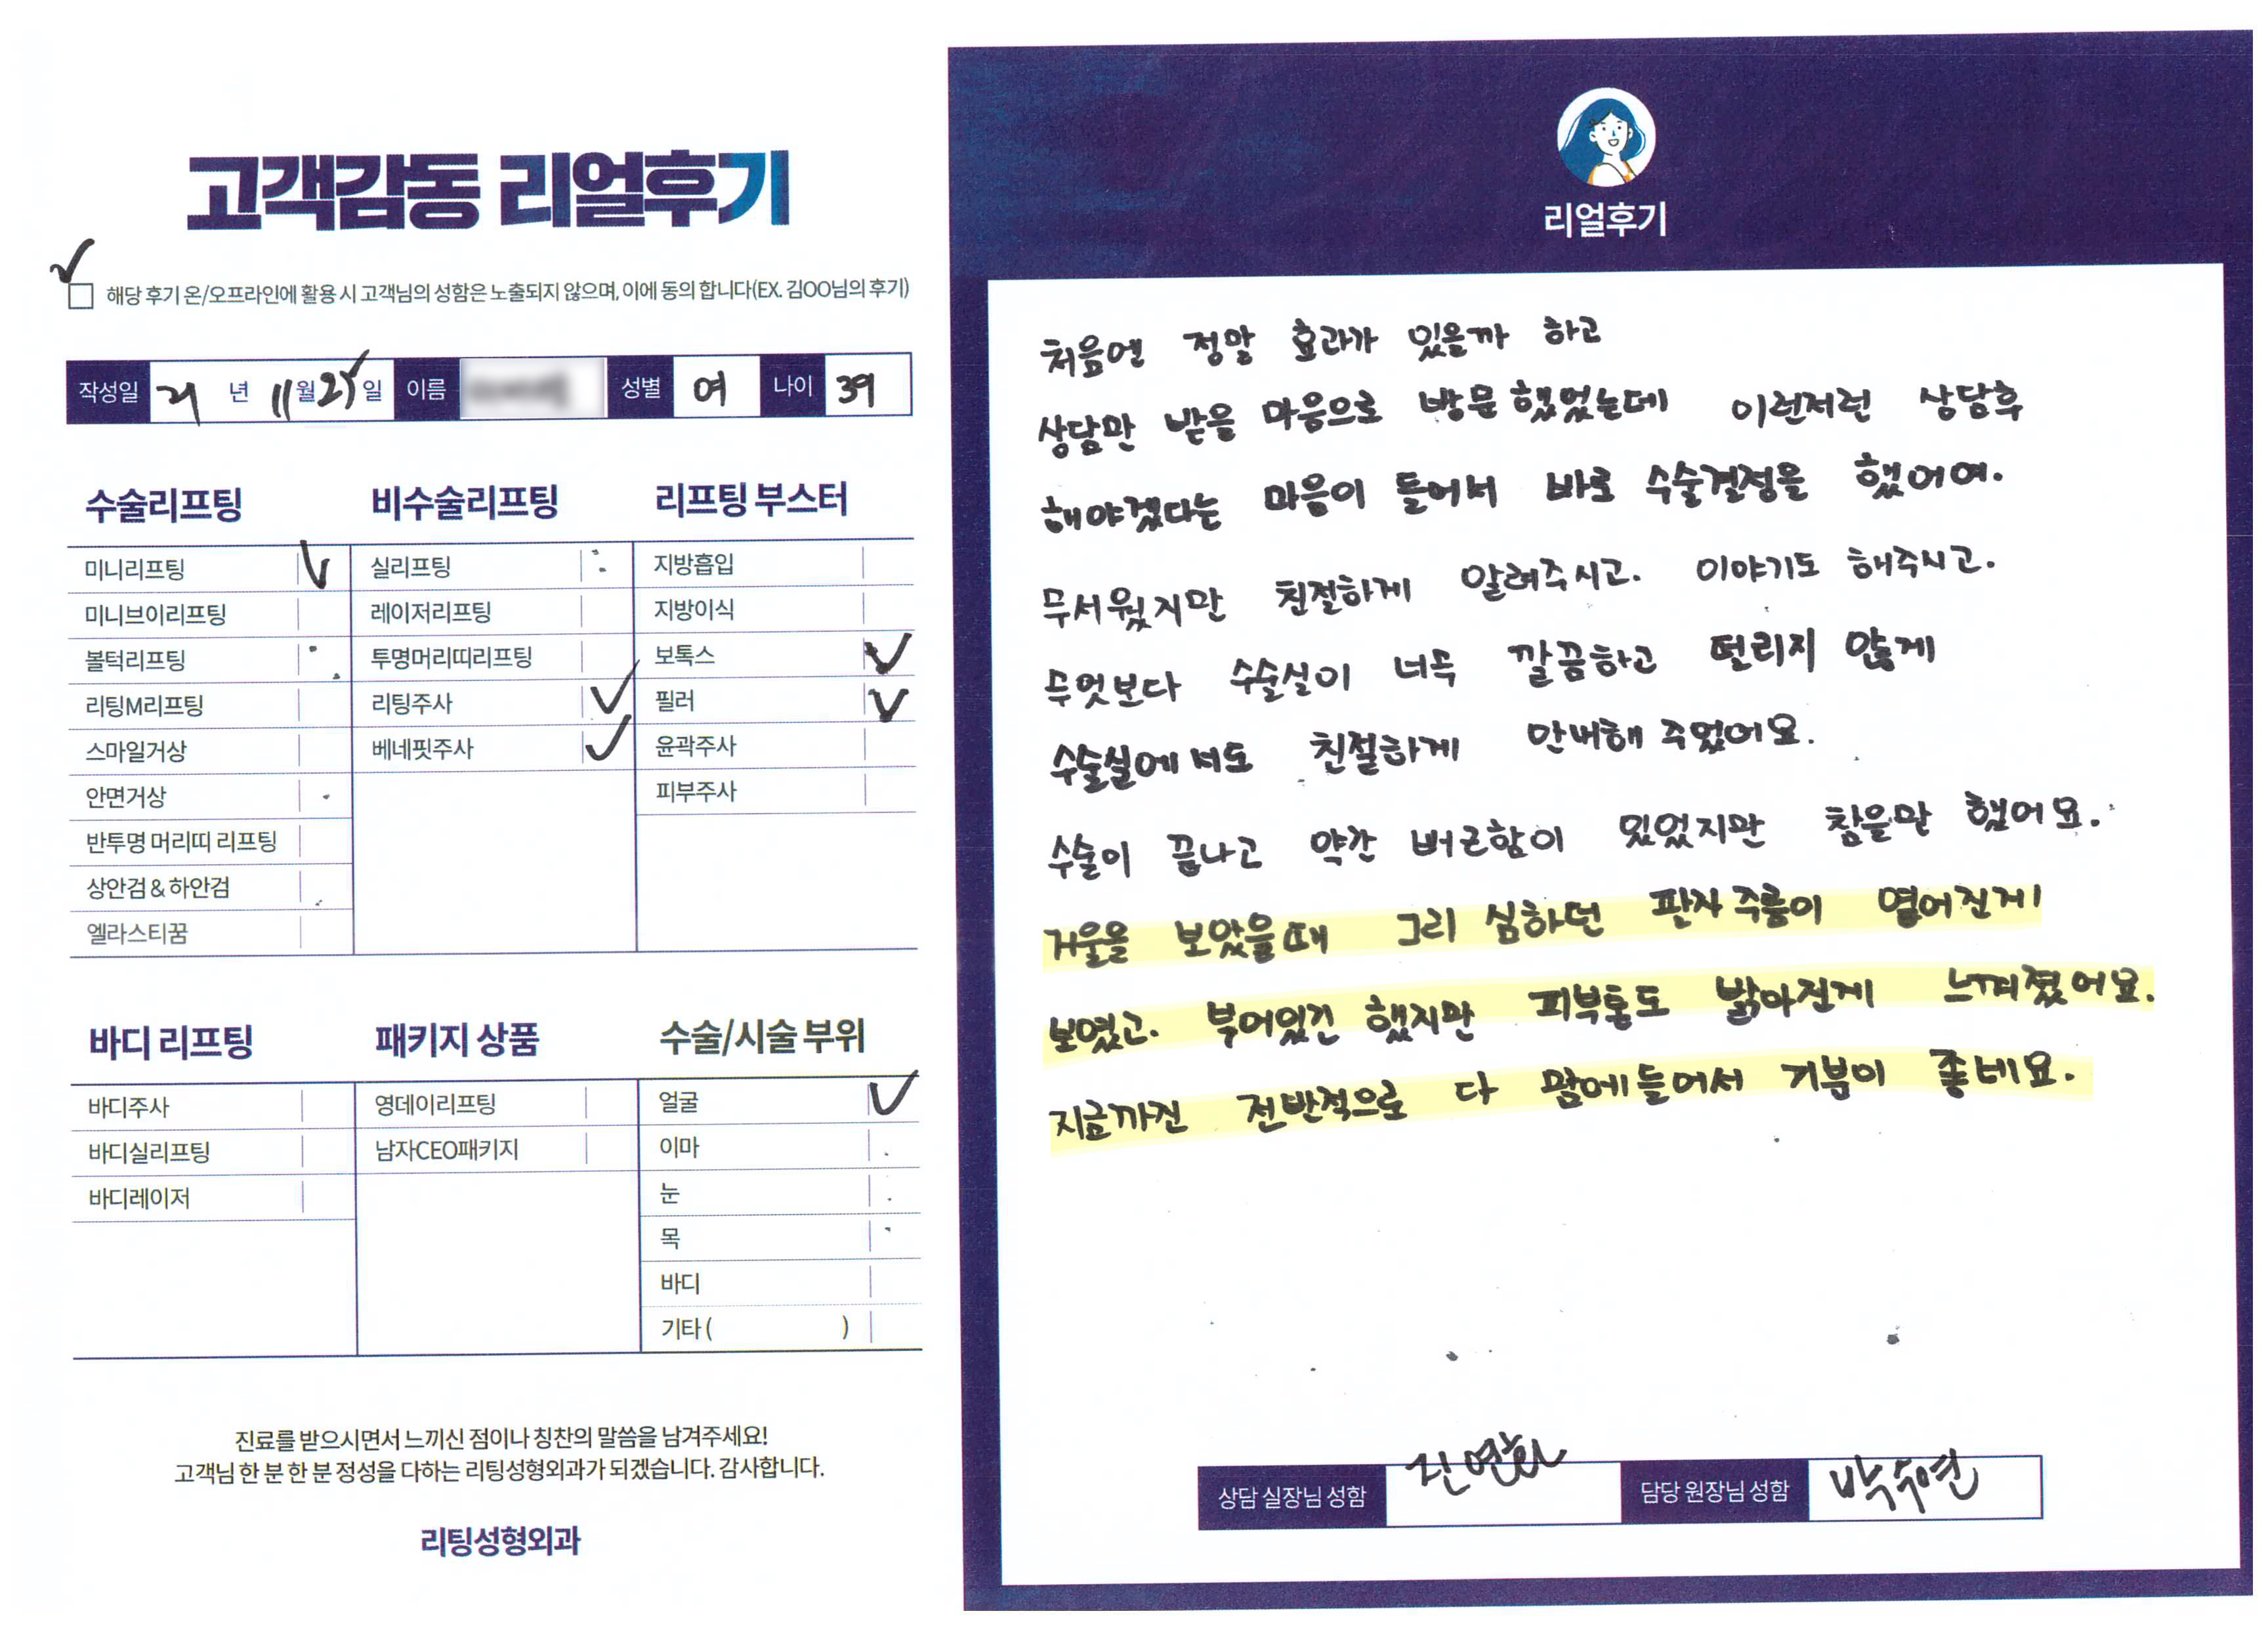 고객감동 리얼후기
해당 후기 온/오프라인에 활용 시 고객님의 성함은 노출되지 않으며, 이에 동의 합니다(EX. 김OO님의 후기)
작성일 21 년 11월 25일 이름 성별 여 나이 39
수술리프팅
미니리프팅
미니브이리프팅
볼턱리프팅
리팅M리프팅
스마일거상
안면거상
반투명 머리띠 리프팅
상안검 & 하안검
엘라스티꿈
비수술리프팅
실리프팅
레이저리프팅
투명머리띠리프팅
리팅주사
베네핏주사
리프팅 부스터
지방흡입
지방이식
보톡스
필러
윤곽주사
피부주사
바디 리프팅
바디주사
바디실리프팅
바디레이저
패키지 상품
영데이리프팅
남자CEO패키지
수술/시술 부위
얼굴
이마
눈
목
바디
기타 ( )
진료를 받으시면서 느끼신 점이나 칭찬의 말씀을 남겨주세요!
고객님 한 분 한 분 정성을 다하는 리팅성형외과가 되겠습니다. 감사합니다.
리팅성형외과
리얼후기
처음엔 정말 효과가 있을까 하고
상담만 받을 마음으로 방문했었는데 이런저런 상담후
해야겠다는 마음이 들어서 바로 수술결정을 했어여.
무서웠지만 친절하게 알려주시고. 이야기도 해주시고.
무엇보다 수술실이 너무 깔끔하고 떨리지 않게
수술실에서도 친절하게 안내해 주었어요.
수술이 끝나고 약간 뻐근함이 있었지만 참을만 했어요.
거울을 보았을때 그리 심하던 팔자주름이 옅어진게
보였고. 부어있긴 했지만 피부톤도 밝아진게 느껴졌어요.
지금까진 전반적으로 다 맘에들어서 기분이 좋네요.
상담 실장님 성함 진연화
담당 원장님 성함 박수연